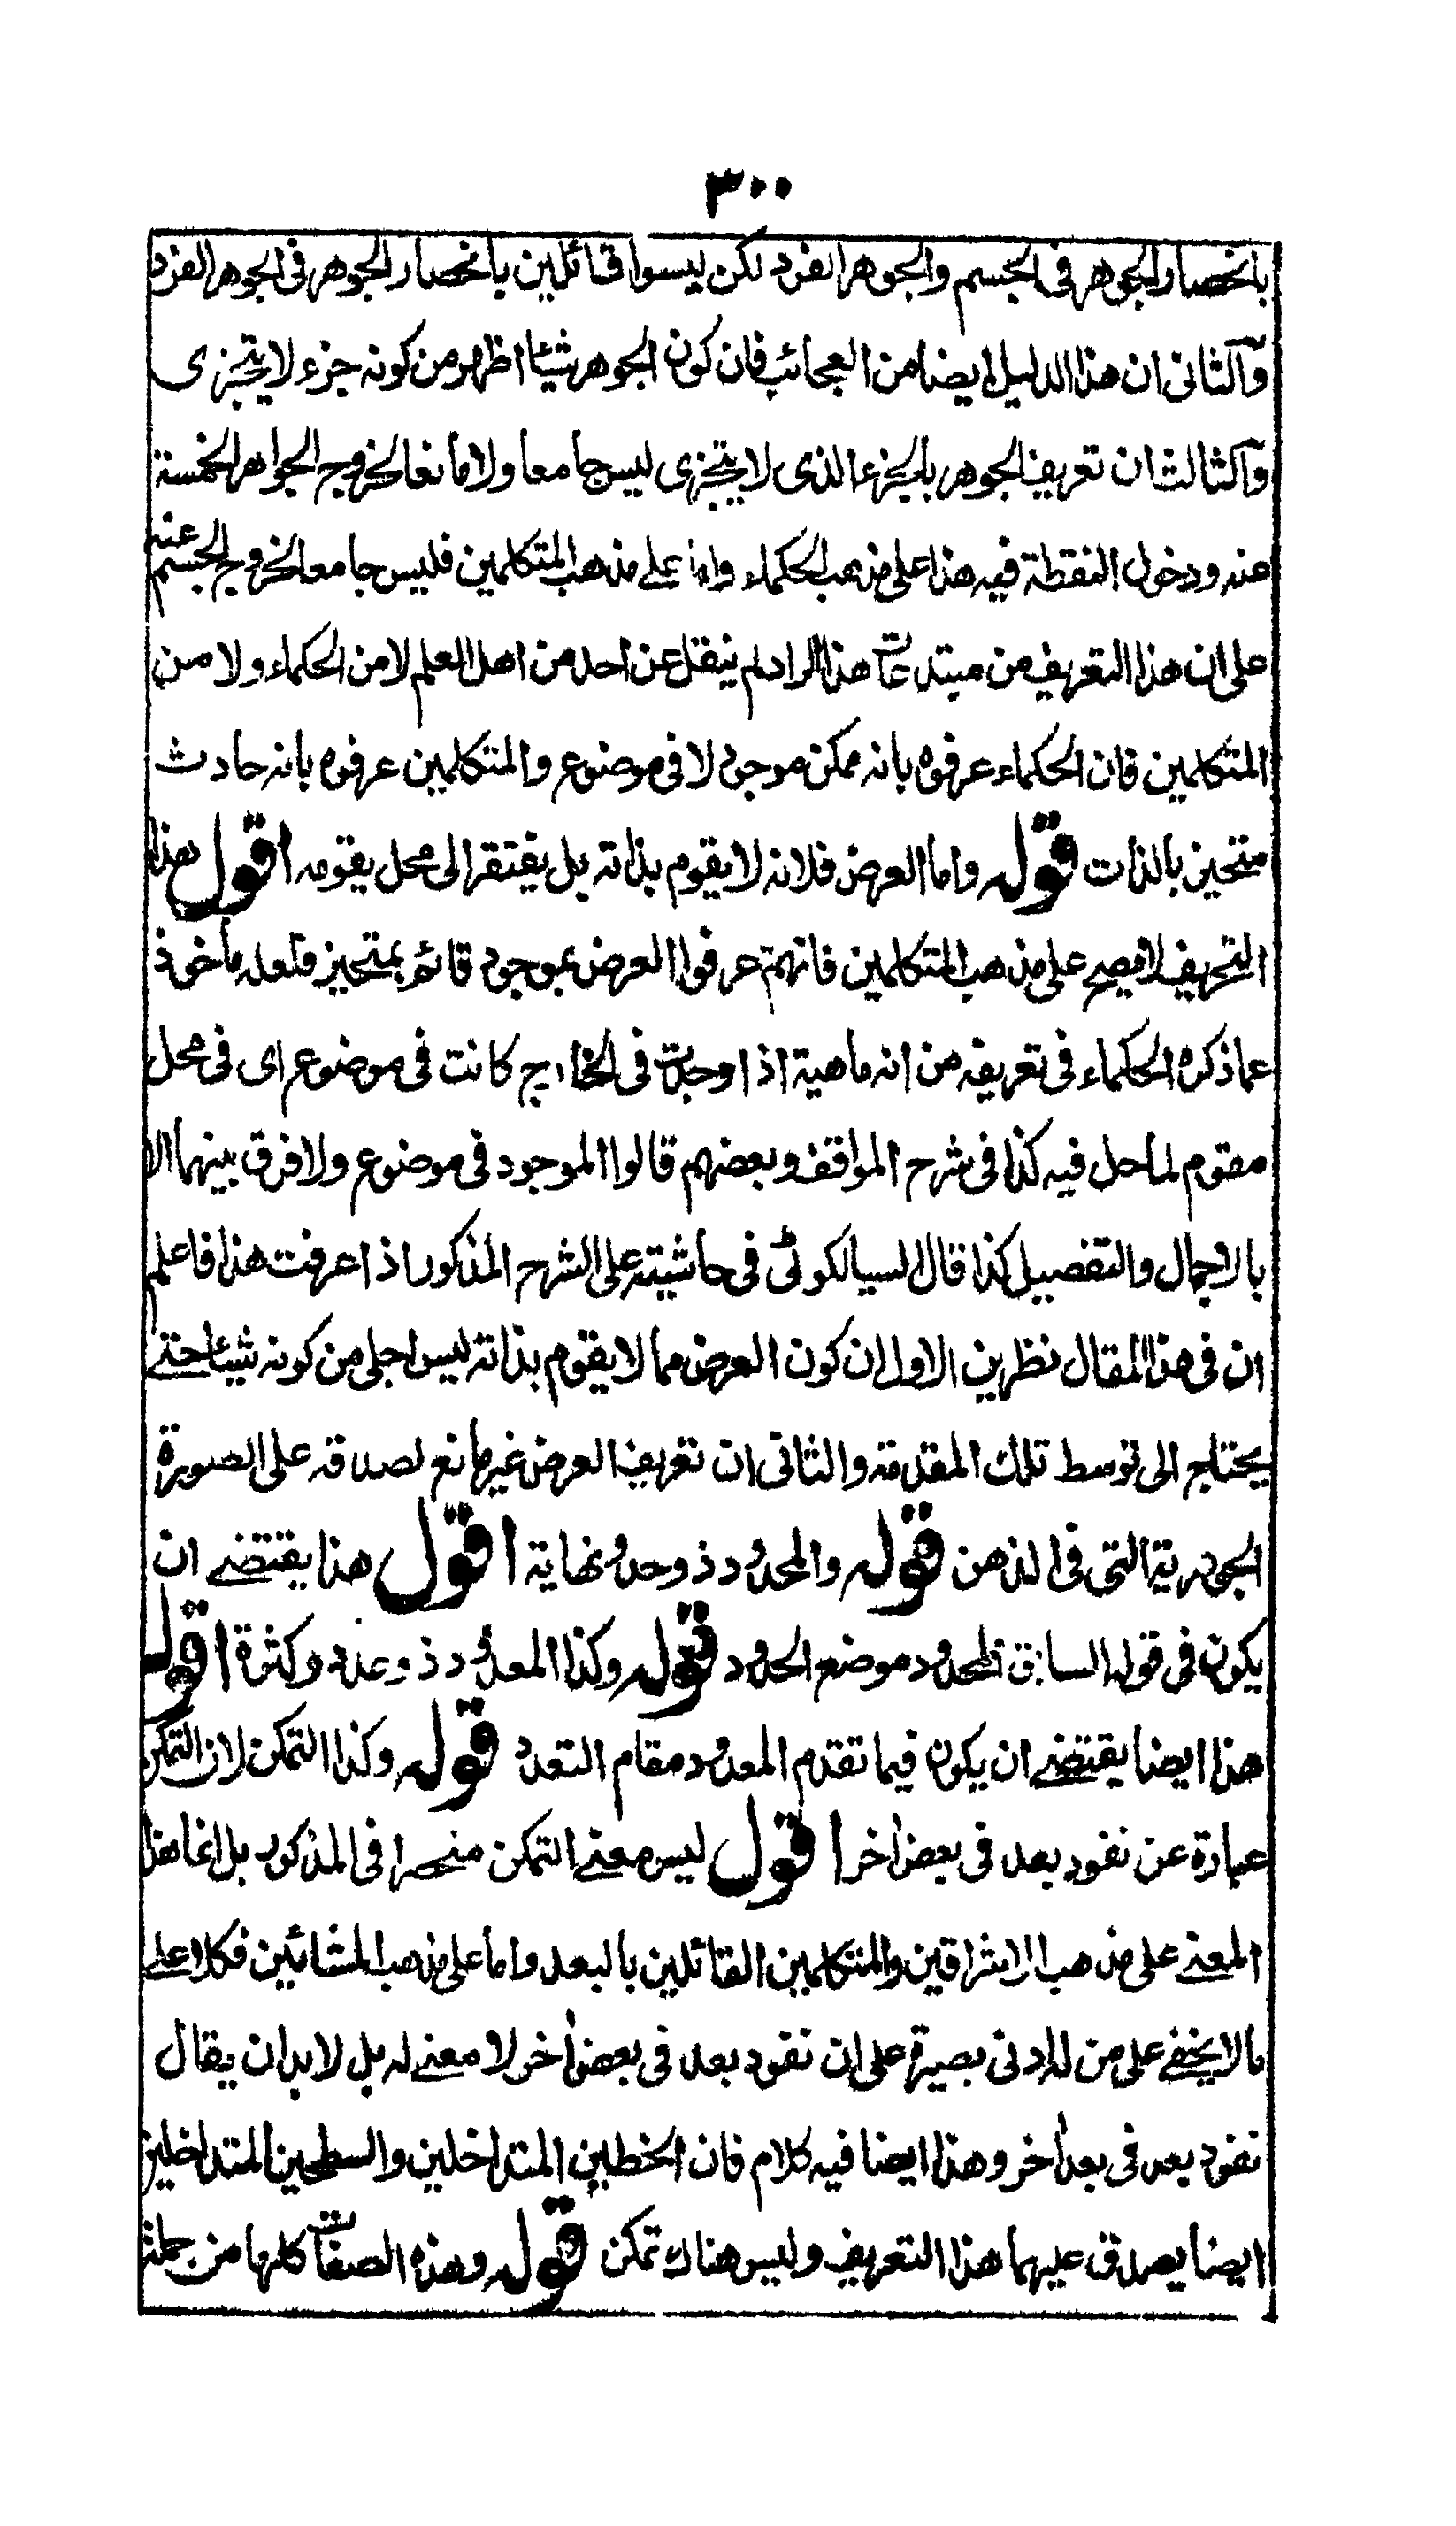 ٣٠٠
بانحصار الجوهر فى الجسم والجوهر الفرد لكن ليسوا قائلين بانحصار الجوهر فى الجوهر الفرد
والثانى ان هذا الدليل ايضا من العجائب فان كون الجوهر شيئا اظهر من كونه جزء لا يتجزى
والثالث ان تعريف الجوهر بالجزء الذى لا يتجزى ليس جامعا ولا مانعا لخروج الجواهر الخمسة
عنه ودخول النقطة فيه هذا على مذهب الحكماء واما على مذهب المتكلمين فليس جامعا لخروج الجسم عنه
على ان هذا التعريف من مبتدعات هذا الراد لم ينقل عن احد من اهل العلم لا من الحكماء ولا من
المتكلمين فان الحكماء عرفوه بانه ممكن موجود لا فى موضوع والمتكلمين عرفوه بانه حادث
متحيز بالذات قوله واما العرض فلانه لا يقوم بذاته بل يفتقر الى محل يقومه اقول هذا
التعريف لا يصح على مذهب المتكلمين فانهم عرفوا العرض بموجود قائم بمتحيز فلعله ماخوذ
عما ذكره الحكماء فى تعريفه من انه ماهية اذا وجدت فى الخارج كانت فى موضوع اى فى محل
مقوم لما حل فيه كذا فى شرح المواقف وبعضهم قالوا الموجود فى موضوع ولا فرق بينهما الا
بالاجمال والتفصيل كذا قال السيالكوٹى فى حاشيته على الشرح المذكور اذا عرفت هذا فاعلم
ان فى هذا المقال نظرين الاول ان كون العرض مما لا يقوم بذاته ليس اجلى من كونه شيئا حتے
يحتاج الى توسط تلك المقدمة والثانى ان تعريف العرض غير مانع لصدقه على الصورة
الجوهرية التى فى الذهن قوله والمحدود ذو حد ونهاية اقول هذا يقتضے ان
يكون فى قوله السابق المحدود موضع الحدود قوله وكذا المعدود ذو عدة وكثرة اقول
هذا ايضا يقتضے ان يكون فيما تقدم المعدود مقام التعدد قوله وكذا التمكن لان التمكن
عبارة عن نفود بعد فى بعض اٰخر اقول ليس معنے التمكن منحصرا فى المذكور بل انما هذا
المعنے على مذهب الاشراقين والمتكلمين القائلين بالبعد واما على مذهب المشائين فكلا على
ما لا يخفے على من له ادنى بصيرة على ان نفود بعد فى بعض اٰخر لا معنے له بل لا بد ان يقال
نفود بعد فى بعد اٰخر وهذا ايضا فيه كلام فان الخطين المتداخلين والسطحين المتداخلين
ايضا يصدق عليهما هذا التعريف وليس هناك تمكن قوله وهذه الصفات كلها من جملة